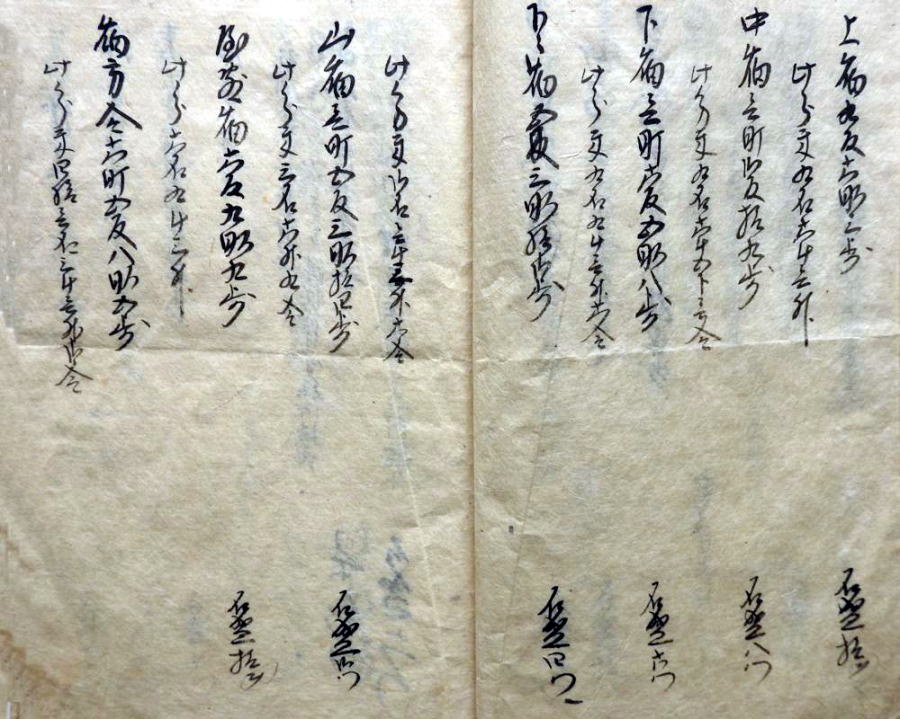 上畑九反六畝三歩 石盛拾ヲ
此分米九石六斗壱升
中畑壱町弐反拾九歩 石盛八ツ
此分米九石六斗五升壱合
下畑壱町六反五畝八歩 石盛六ツ
此分米九石九斗壱升六合
下々畑五反三畝拾弐歩 石盛四ツ
此分米弐石壱斗三升六合
山畑壱町五反三畝拾四歩 石盛弐ツ
此分米三石六升九合
屋敷畑六反九畝九歩 石盛拾ヲ
此分米六石九斗三升
畑方合六町五反八畝五歩
此分米四拾壱石三斗壱升弐合